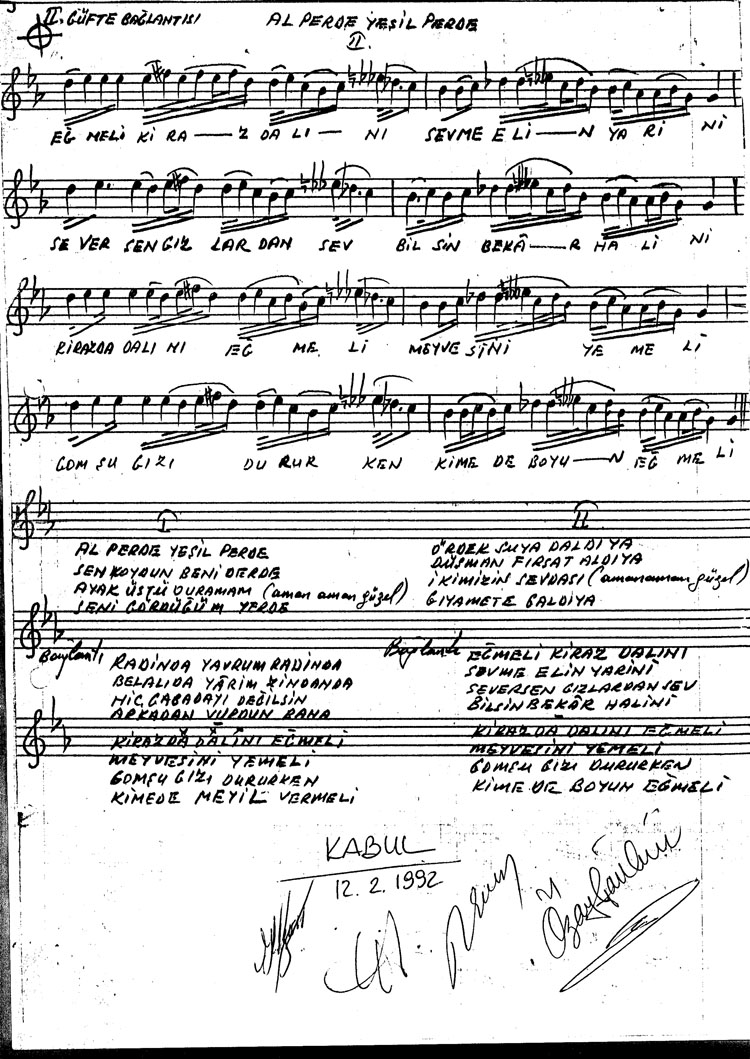 II. GÜFTE BAĞLANTISI
AL PERDE YEŞİL PERDE
II.
EĞ MELİ Kİ RA — Z DA LI — NI SEVME E LI — N YA RI NI
SE VER SEN GIZ LAR DAN SEV BİL SİN BEKÂ — R HA Lİ Nİ
KIRAZDA DALI NI EĞ ME Lİ MEYVE SİNİ YE ME Lİ
GOM ŞU GIZI DU RUR KEN KİME DE BOYU — N EĞ ME Lİ
I
AL PERDE YEŞİL PERDE
SEN KOYDUN BENİ DERDE
AYAK ÜSTÜ DURAMAM (aman aman güzel)
SENİ GÖRDÜĞÜM YERDE
II
ÖRDEK SUYA DALDIYA
DÜŞMAN FIRSAT ALDIYA
İKİMİZİN SEVDASI (aman aman güzel)
GIYAMETE GALDIYA
Bağlantı
RADİNDA YAVRUM RADİNDA
BELALIDA YÂRİM ZİNDANDA
HİÇ GABADAYI DEĞİLSİN
ARKADAN VURDUN BANA
KİRAZDA DALINI EĞMELİ
MEYVESİNİ YEMELİ
GOMŞU GIZI DURURKEN
KİMEDE MEYİL VERMELİ
Bağlantı
EĞMELİ KİRAZ DALINI
SEVME ELİN YARİNİ
SEVERSEN GIZLARDAN SEV
BİLSİN BEKÂR HALİNİ
KİRAZDA DALINI EĞMELİ
MEYVESİNİ YEMELİ
GOMŞU GIZI DURURKEN
KİME DE BOYUN EĞMELİ
KABUL
12.2.1992